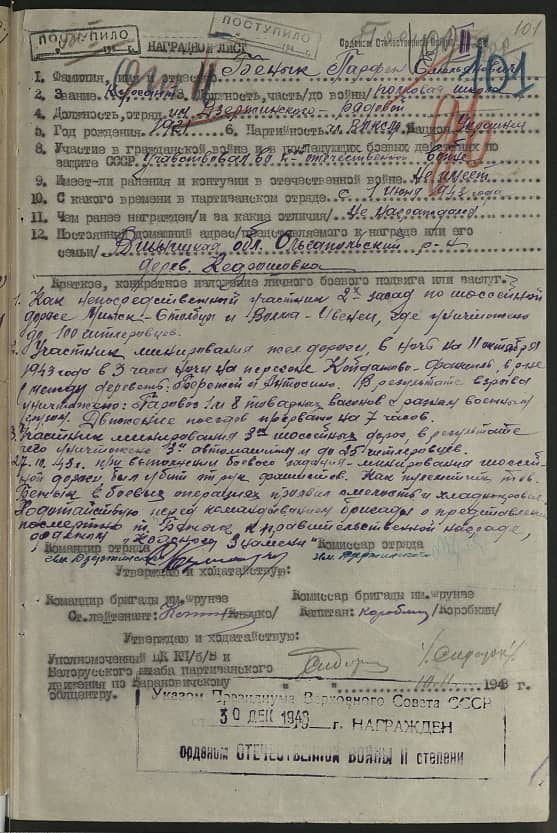 ПОСТУПИЛО
ПОСТУПИЛО
101
НАГРАДНОЙ ЛИСТ
Орденом Отечественной Войны II
1. Фамилия, имя и отчество Беньяк Парфен
101
2. Звание 3. Должность, часть/до войны/ полковая школа
4. Должность, отряд им. Дзержинского - рядовой
5. Год рождения 1921 6. Партийность чл. ВЛКСМ Национ. Украинец
8. Участие в гражданской войне и в последующих боевых действиях по
защите СССР. участвовал в отечественной войне
9. Имеет-ли ранения и контузии в отечественной войне. Не имеет
10. С какого времени в партизанском отряде. с 1 июня 1943 года
11. Чем ранее награжден/и за какие отличия/ Не награждался
12. Постоянный домашний адрес/представляемого к награде или его
семьи/ обл. Ольгопольский р-н
дерев.
Краткое, конкретное изложение личного боевого подвига или заслуг.
1. Как непосредственный участник 2х засад по шоссейной
дороге Минск-Столбцы и Волма-Ивенец, где уничтожено
до 100 гитлеровцев.
2. Участник минирования жел. дороги, в ночь на 11 октября
1943 года в 3 часа ночи на перегоне Койданово-Фаниполь, в р-не
между деревень и В результате взрыва
уничтожено: Паровоз 1 и 8 товарных вагонов с разным военным
грузом. Движение поездов прервано на 7 часов.
3. Участник минирования 3х шоссейных дорог, в результате
чего уничтожено 3 автомашины и до 25 гитлеровцев.
27.10.43г. при выполнении боевого задания-минирования шоссей-
ной дороги был убит от рук фашистов. Как пулеметчик тов.
Беньяк в боевых операциях проявил смелость и
Ходатайствую перед командованием бригады о представлении
посмертно т. Беньяка к правительственной награде,
орденом "Красного Знамени"
Командир отряда Комиссар отряда
им. Дзержинского им. Дзержинского
Утверждаю и ходатайствую:
Командир бригады им. Фрунзе Комиссар бригады им. Фрунзе
Ст. лейтенант: Капитан: Коробкин /Коробкин/
Утверждаю и ходатайствую:
Уполномоченный ЦК КП/б/Б и
Белорусского штаба партизанского
движения по Барановичскому
обцентру.
Сидорок /Сидорок/
10.11 1943 г.
Указом Президиума Верховного Совета СССР
30 ДЕК 1943 г. НАГРАЖДЕН
орденом ОТЕЧЕСТВЕННОЙ ВОЙНЫ II степени